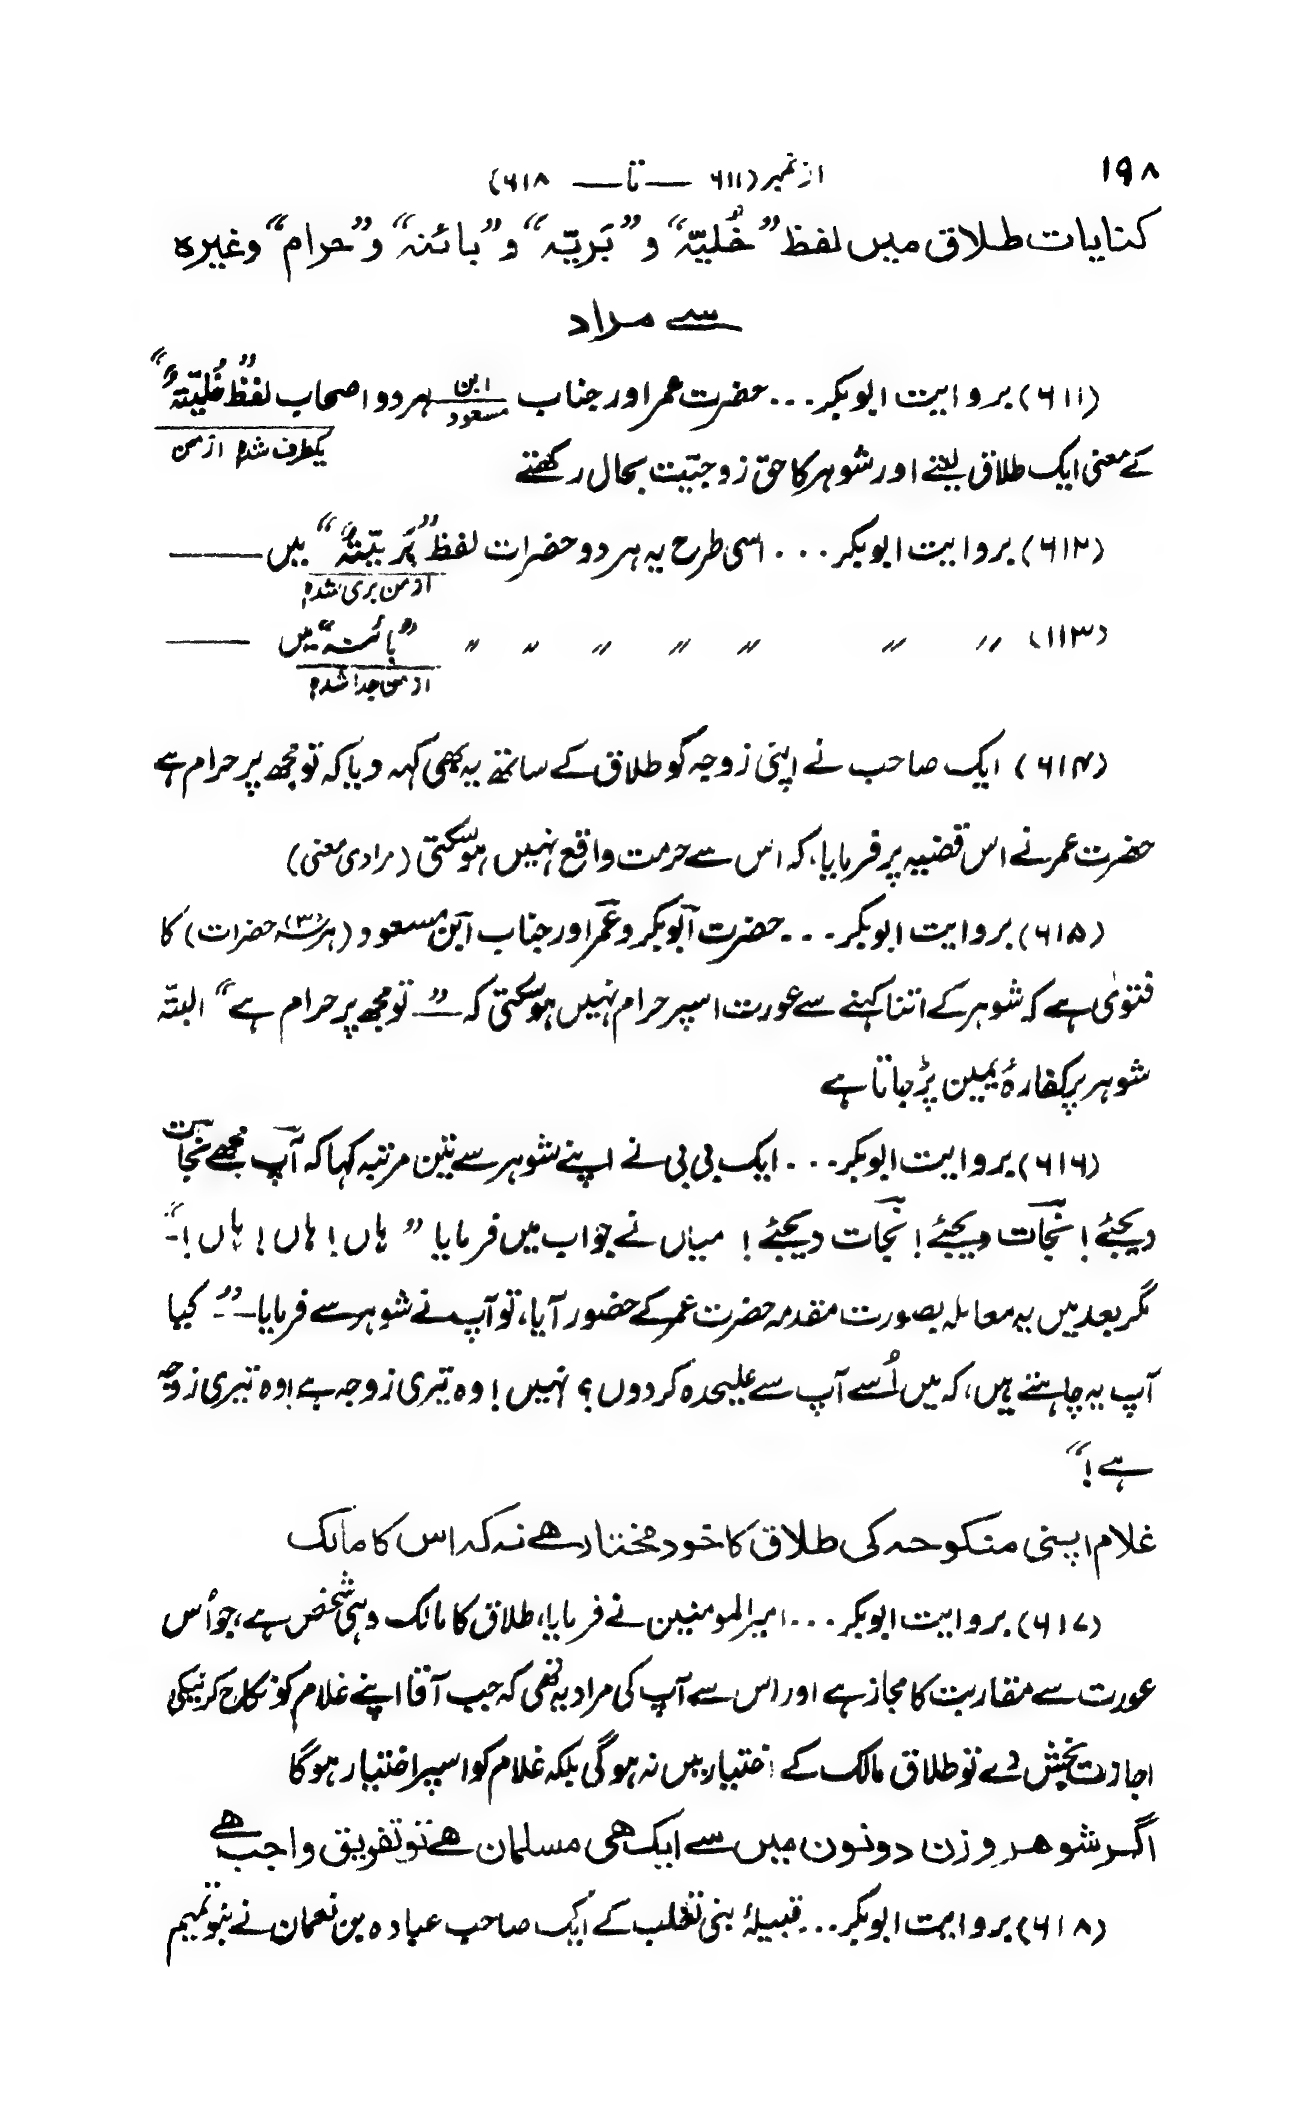 ۱۹۸
از نمبر (۶۱۱ — تا — ۶۱۸)
کنایات طلاق میں لفظ "خُلیّہ" و "بَریّہ" و "بائنہ" و "حرام" وغیرہ
سے مراد
(۶۱۱) بروایت ابوبکر... حضرت عمر اور جناب ابن مسعود ہر دو اصحاب لفظ "خُلیّتہٌ"
یکطرف شدہ از من
کے معنی ایک طلاق لیتے اور شوہر کا حق زوجیّت بحال رکھتے
(۶۱۲) بروایت ابوبکر... اسی طرح یہ ہر دو حضرات لفظ "بَریّتہٌ" میں ——
از من بری شدہ
(۱۱۳) 〃 〃 〃 〃 〃 〃 〃 "بائنہ" میں ——
از من جدا شدہ
(۶۱۴) ایک صاحب نے اپنی زوجہ کو طلاق کے ساتھ یہ بھی کہہ دیا کہ تو مجھ پر حرام ہے
حضرت عمر نے اس قضیہ پر فرمایا، کہ اس سے حرمت واقع نہیں ہو سکتی (مرادی معنی)
(۶۱۵) بروایت ابوبکر... حضرت ابوبکر و عمر اور جناب ابن مسعود (ہر سہ (۳) حضرات) کا
فتویٰ ہے کہ شوہر کے اتنا کہنے سے عورت اسپر حرام نہیں ہو سکتی کہ — "تو مجھ پر حرام ہے" البتّہ
شوہر پر کفارۂ یمین پڑ جاتا ہے
(۶۱۶) بروایت ابوبکر... ایک بی بی نے اپنے شوہر سے تین مرتبہ کہا کہ آپ مجھے نجات
دیجئے! نجات دیجئے! نجات دیجئے! میاں نے جواب میں فرمایا "ہاں! ہاں! ہاں!"۔
مگر بعد میں یہ معاملہ بصورت مقدمہ حضرت عمر کے حضور آیا، تو آپ نے شوہر سے فرمایا۔ "۔ کیا
آپ یہ چاہتے ہیں، کہ میں اُسے آپ سے علیحدہ کر دوں؟ نہیں! وہ تیری زوجہ ہے! وہ تیری زوجہ
ہے!"
غلام اپنی منکوحہ کی طلاق کا خود مختار ہے نہ کہ اس کا مالک
(۶۱۷) بروایت ابوبکر... امیر المومنین نے فرمایا، طلاق کا مالک وہی شخص ہے، جو اُس
عورت سے مقاربت کا مجاز ہے اور اس سے آپ کی مراد یہ تھی کہ جب آقا اپنے غلام کو نکاح کرنیکی
اجازت بخش دے تو طلاق مالک کے اختیار میں نہ ہو گی بلکہ غلام کو اسپر اختیار ہو گا
اگر شوہر و زن دونوں میں سے ایک ھی مسلمان ھے تو تفریق واجب ھے
(۶۱۸) بروایت ابوبکر... قبیلۂ بنی تغلب کے ایک صاحب عبادہ بن نعمان نے بنو تمیم